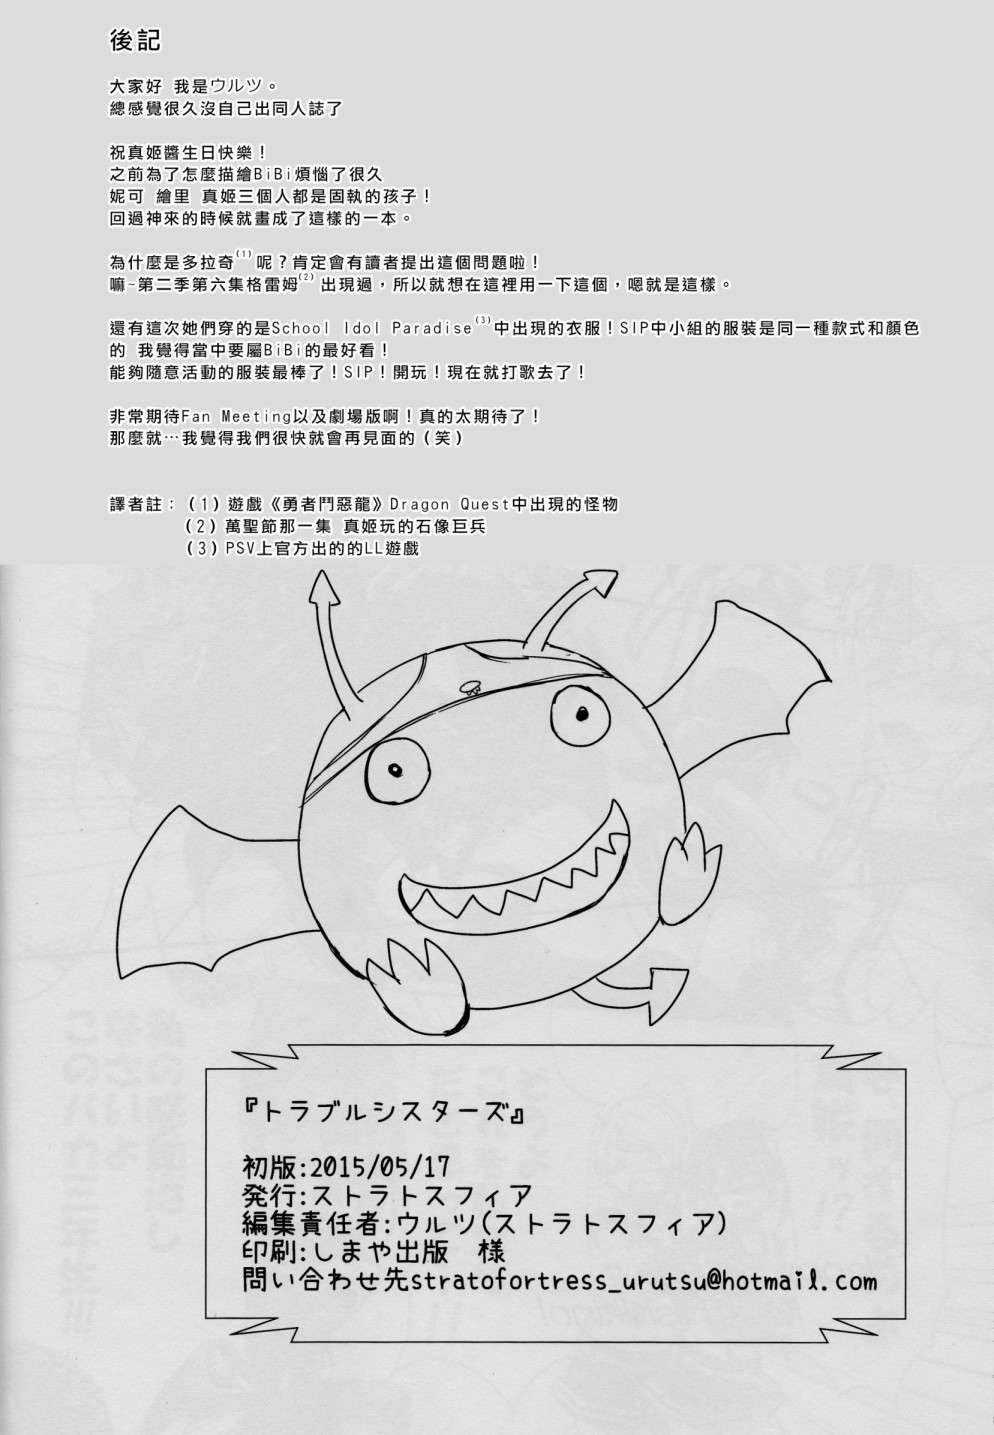 後記
大家好 我是ウルツ。
總感覺很久沒自己出同人誌了
祝真姬醬生日快樂！
之前為了怎麼描繪BiBi煩惱了很久
妮可 繪里 真姬三個人都是固執的孩子！
回過神來的時候就畫成了這樣的一本。
為什麼是多拉奇(1)呢？肯定會有讀者提出這個問題啦！
嘛~第二季第六集格雷姆(2)出現過，所以就想在這裡用一下這個，嗯就是這樣。
還有這次她們穿的是School Idol Paradise(3)中出現的衣服！SIP中小組的服裝是同一種款式和顏色
的 我覺得當中要屬BiBi的最好看！
能夠隨意活動的服裝最棒了！SIP！開玩！現在就打歌去了！
非常期待Fan Meeting以及劇場版啊！真的太期待了！
那麼就…我覺得我們很快就會再見面的（笑）
譯者註：（1）遊戲《勇者鬥惡龍》Dragon Quest中出現的怪物
（2）萬聖節那一集 真姬玩的石像巨兵
（3）PSV上官方出的的LL遊戲
『トラブルシスターズ』
初版:2015/05/17
発行:ストラトスフィア
編集責任者:ウルツ(ストラトスフィア)
印刷:しまや出版　様
問い合わせ先stratofortress_urutsu@hotmail.com